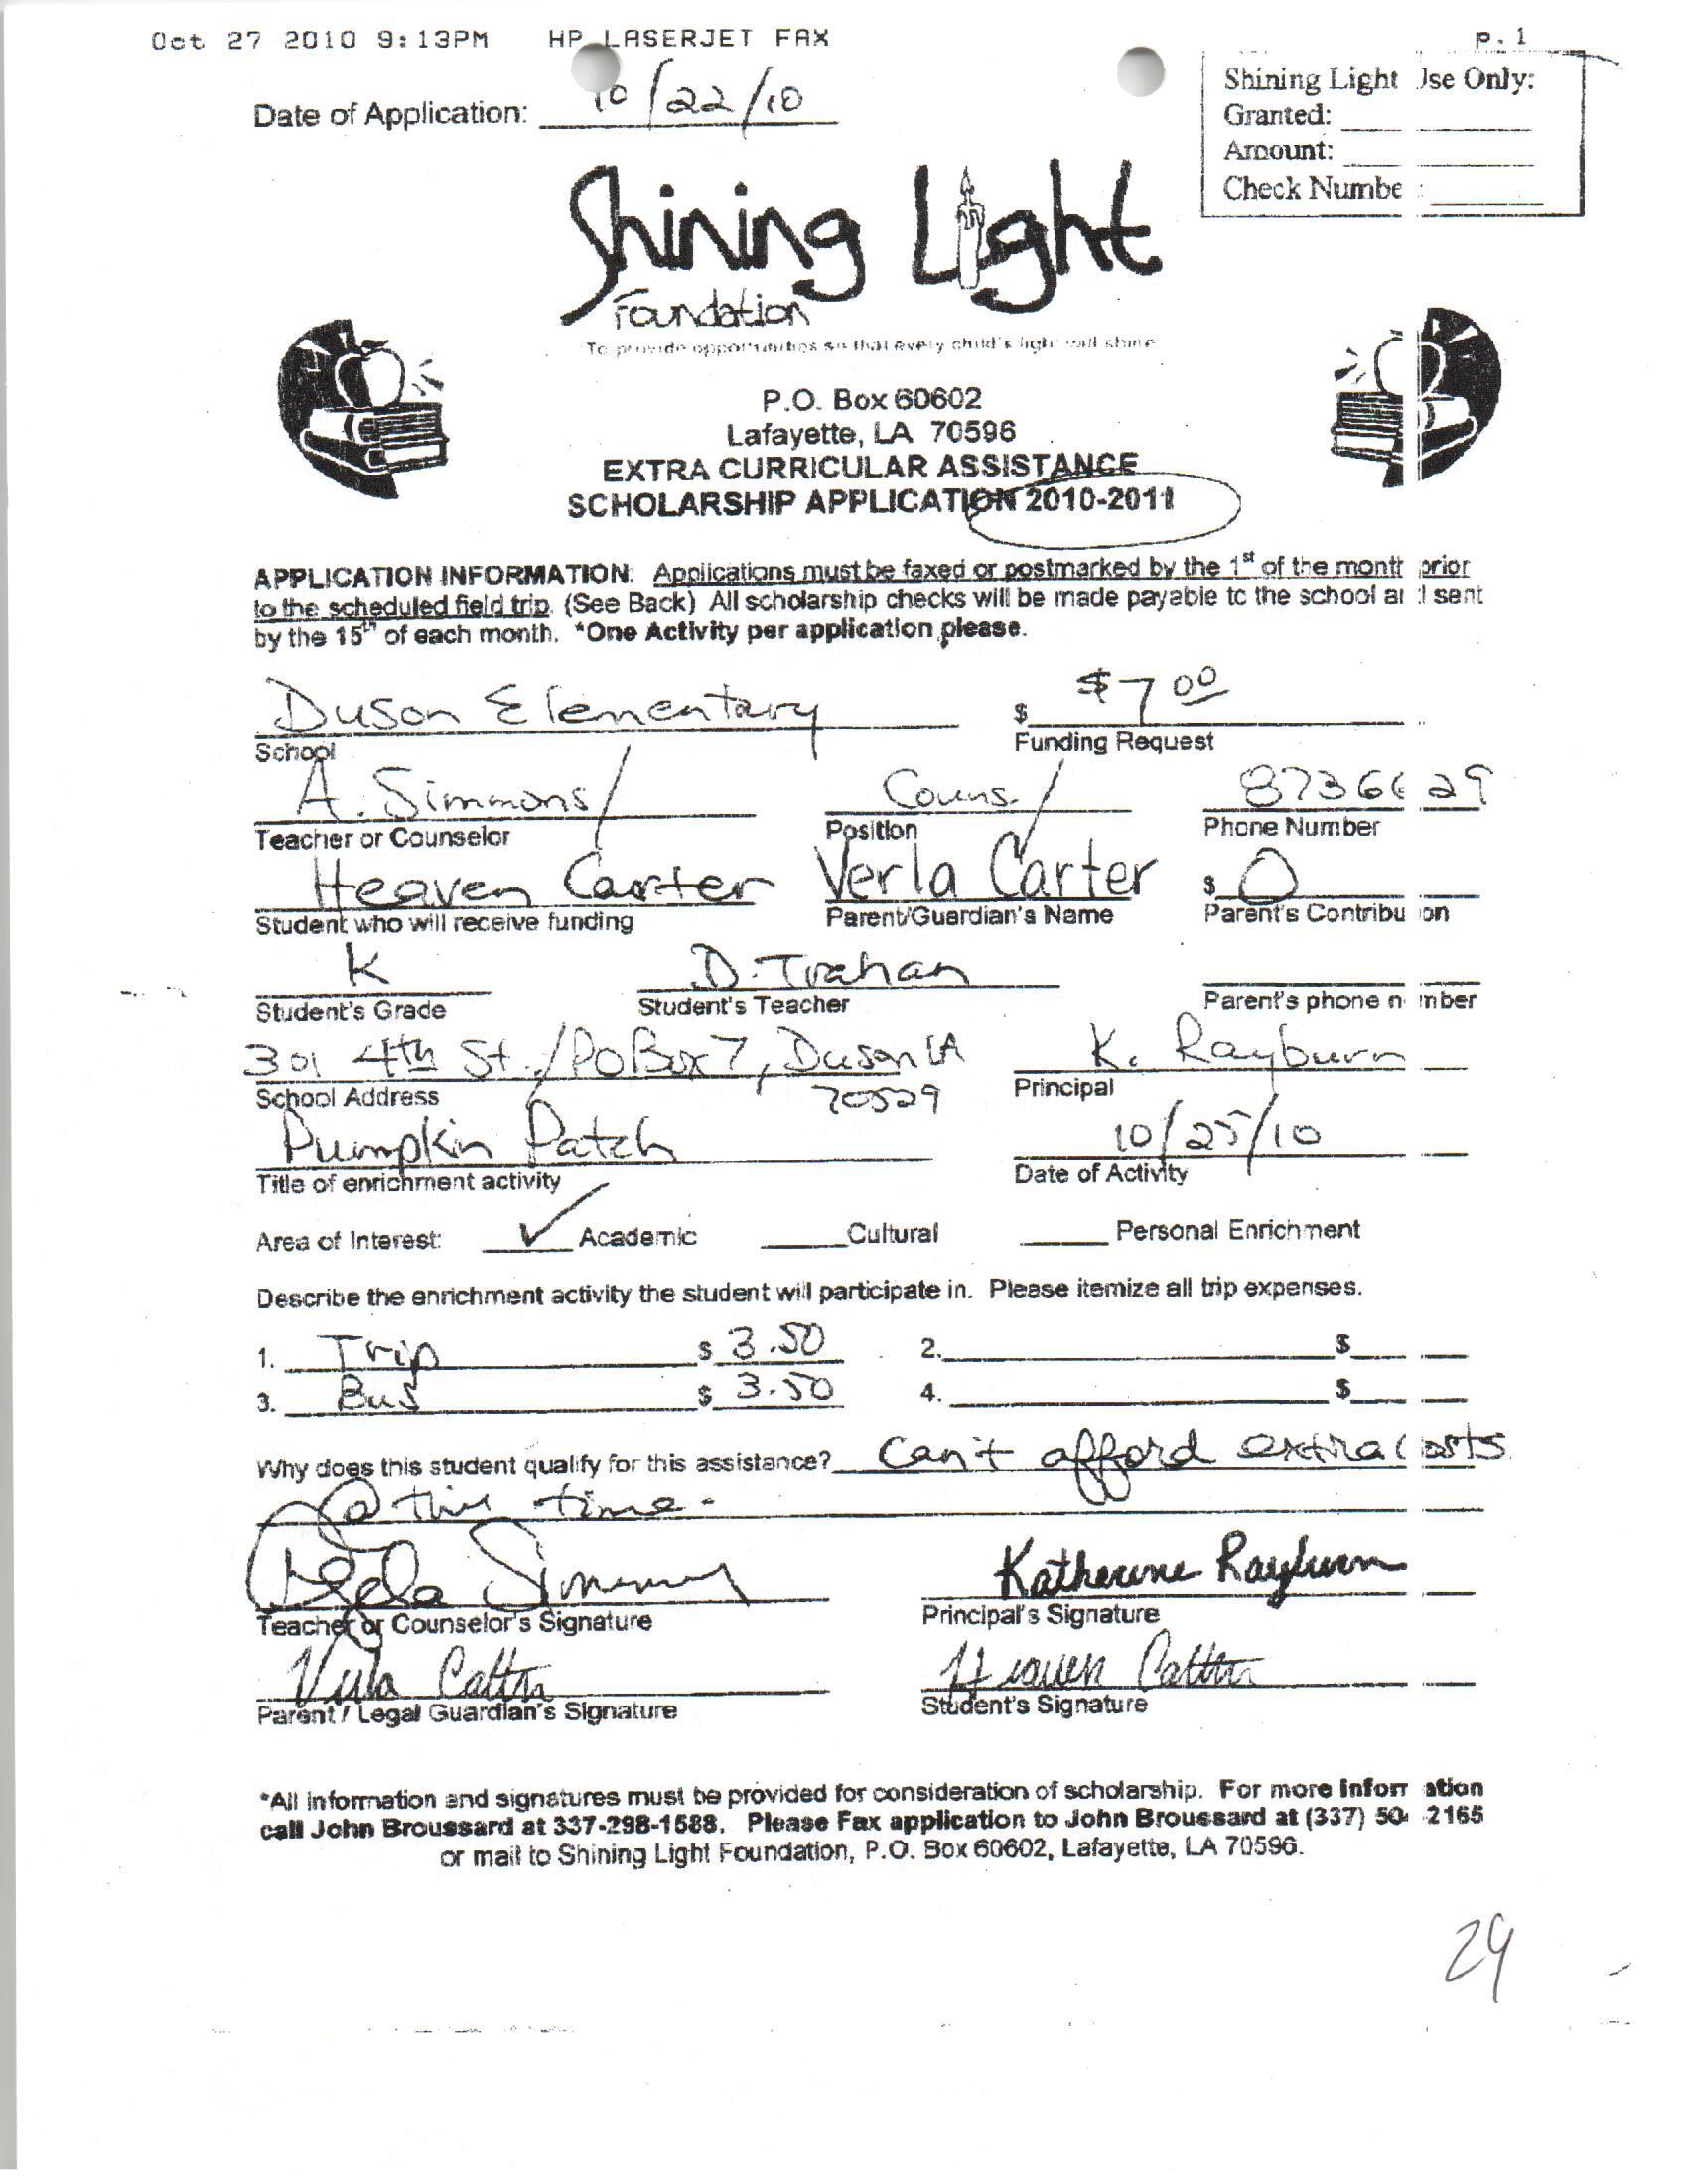 Oct 27 2010 9:13PM HP LASERJET FAX p.1
Date of Application: 10/22/10
Shining Light Use Only:
Granted:
Amount:
Check Numbe :
Shining Light
Foundation
To provide opportunities so that every child's light will shine
P.O. Box 60602
Lafayette, LA 70596
EXTRA CURRICULAR ASSISTANCE
SCHOLARSHIP APPLICATION 2010-2011
APPLICATION INFORMATION: Applications must be faxed or postmarked by the 1st of the month prior
to the scheduled field trip. (See Back) All scholarship checks will be made payable to the school and sent
by the 15th of each month. *One Activity per application please.
Duson Elementary $ $7 00
School Funding Request
A. Simmons Couns. 8736629
Teacher or Counselor Position Phone Number
Heaven Carter Verla Carter $ 0
Student who will receive funding Parent/Guardian's Name Parent's Contribution
K D. Trahan
Student's Grade Student's Teacher Parent's phone number
301 4th St./PO Box 7, Duson LA K. Rayburn
School Address 70529 Principal
Pumpkin Patch 10/25/10
Title of enrichment activity Date of Activity
Area of Interest: ✓ Academic Cultural Personal Enrichment
Describe the enrichment activity the student will participate in. Please itemize all trip expenses.
1. Trip $ 3.50 2. $
3. Bus $ 3.50 4. $
Why does this student qualify for this assistance? Can't afford extra costs
@ this time.
Simmons Katherine Rayburn
Teacher or Counselor's Signature Principal's Signature
Verla Carter Heaven Carter
Parent / Legal Guardian's Signature Student's Signature
*All information and signatures must be provided for consideration of scholarship. For more information
call John Broussard at 337-298-1588. Please Fax application to John Broussard at (337) 50 2165
or mail to Shining Light Foundation, P.O. Box 60602, Lafayette, LA 70596.
29